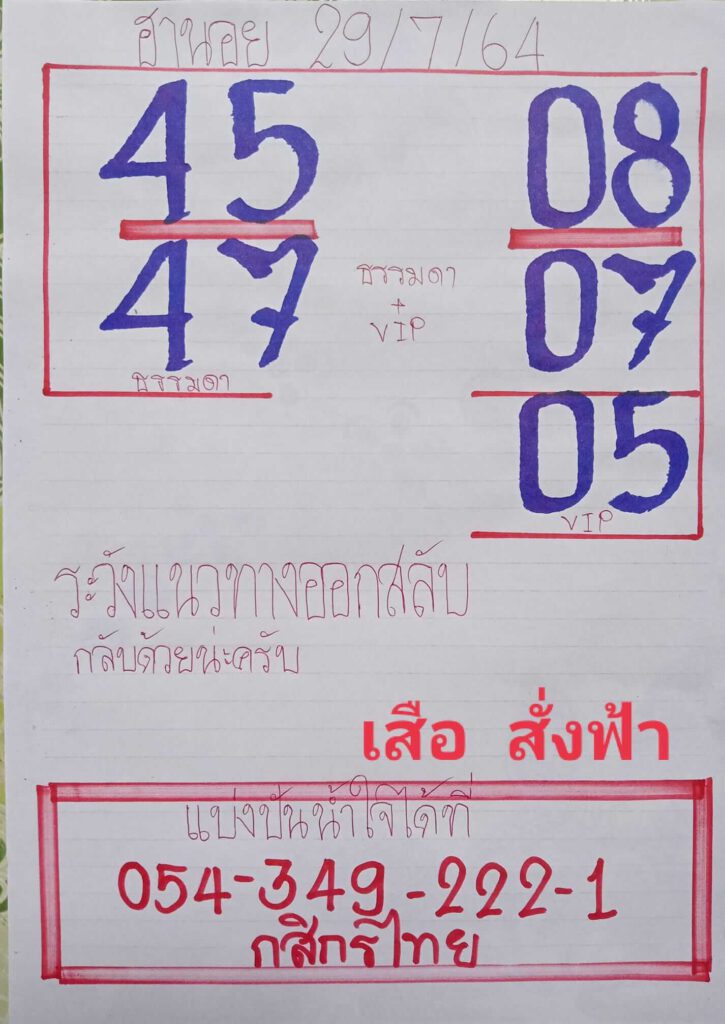 ฮานอย 29/7/64
45 08
47 07
ธรรมดา
+
VIP
ธรรมดา
05
VIP
ระวังแนวทางออกสลับ
กลับด้วยน่ะครับ
เสือ สั่งฟ้า
แบ่งปันน้ำใจได้ที่
054-349-222-1
กสิกรไทย